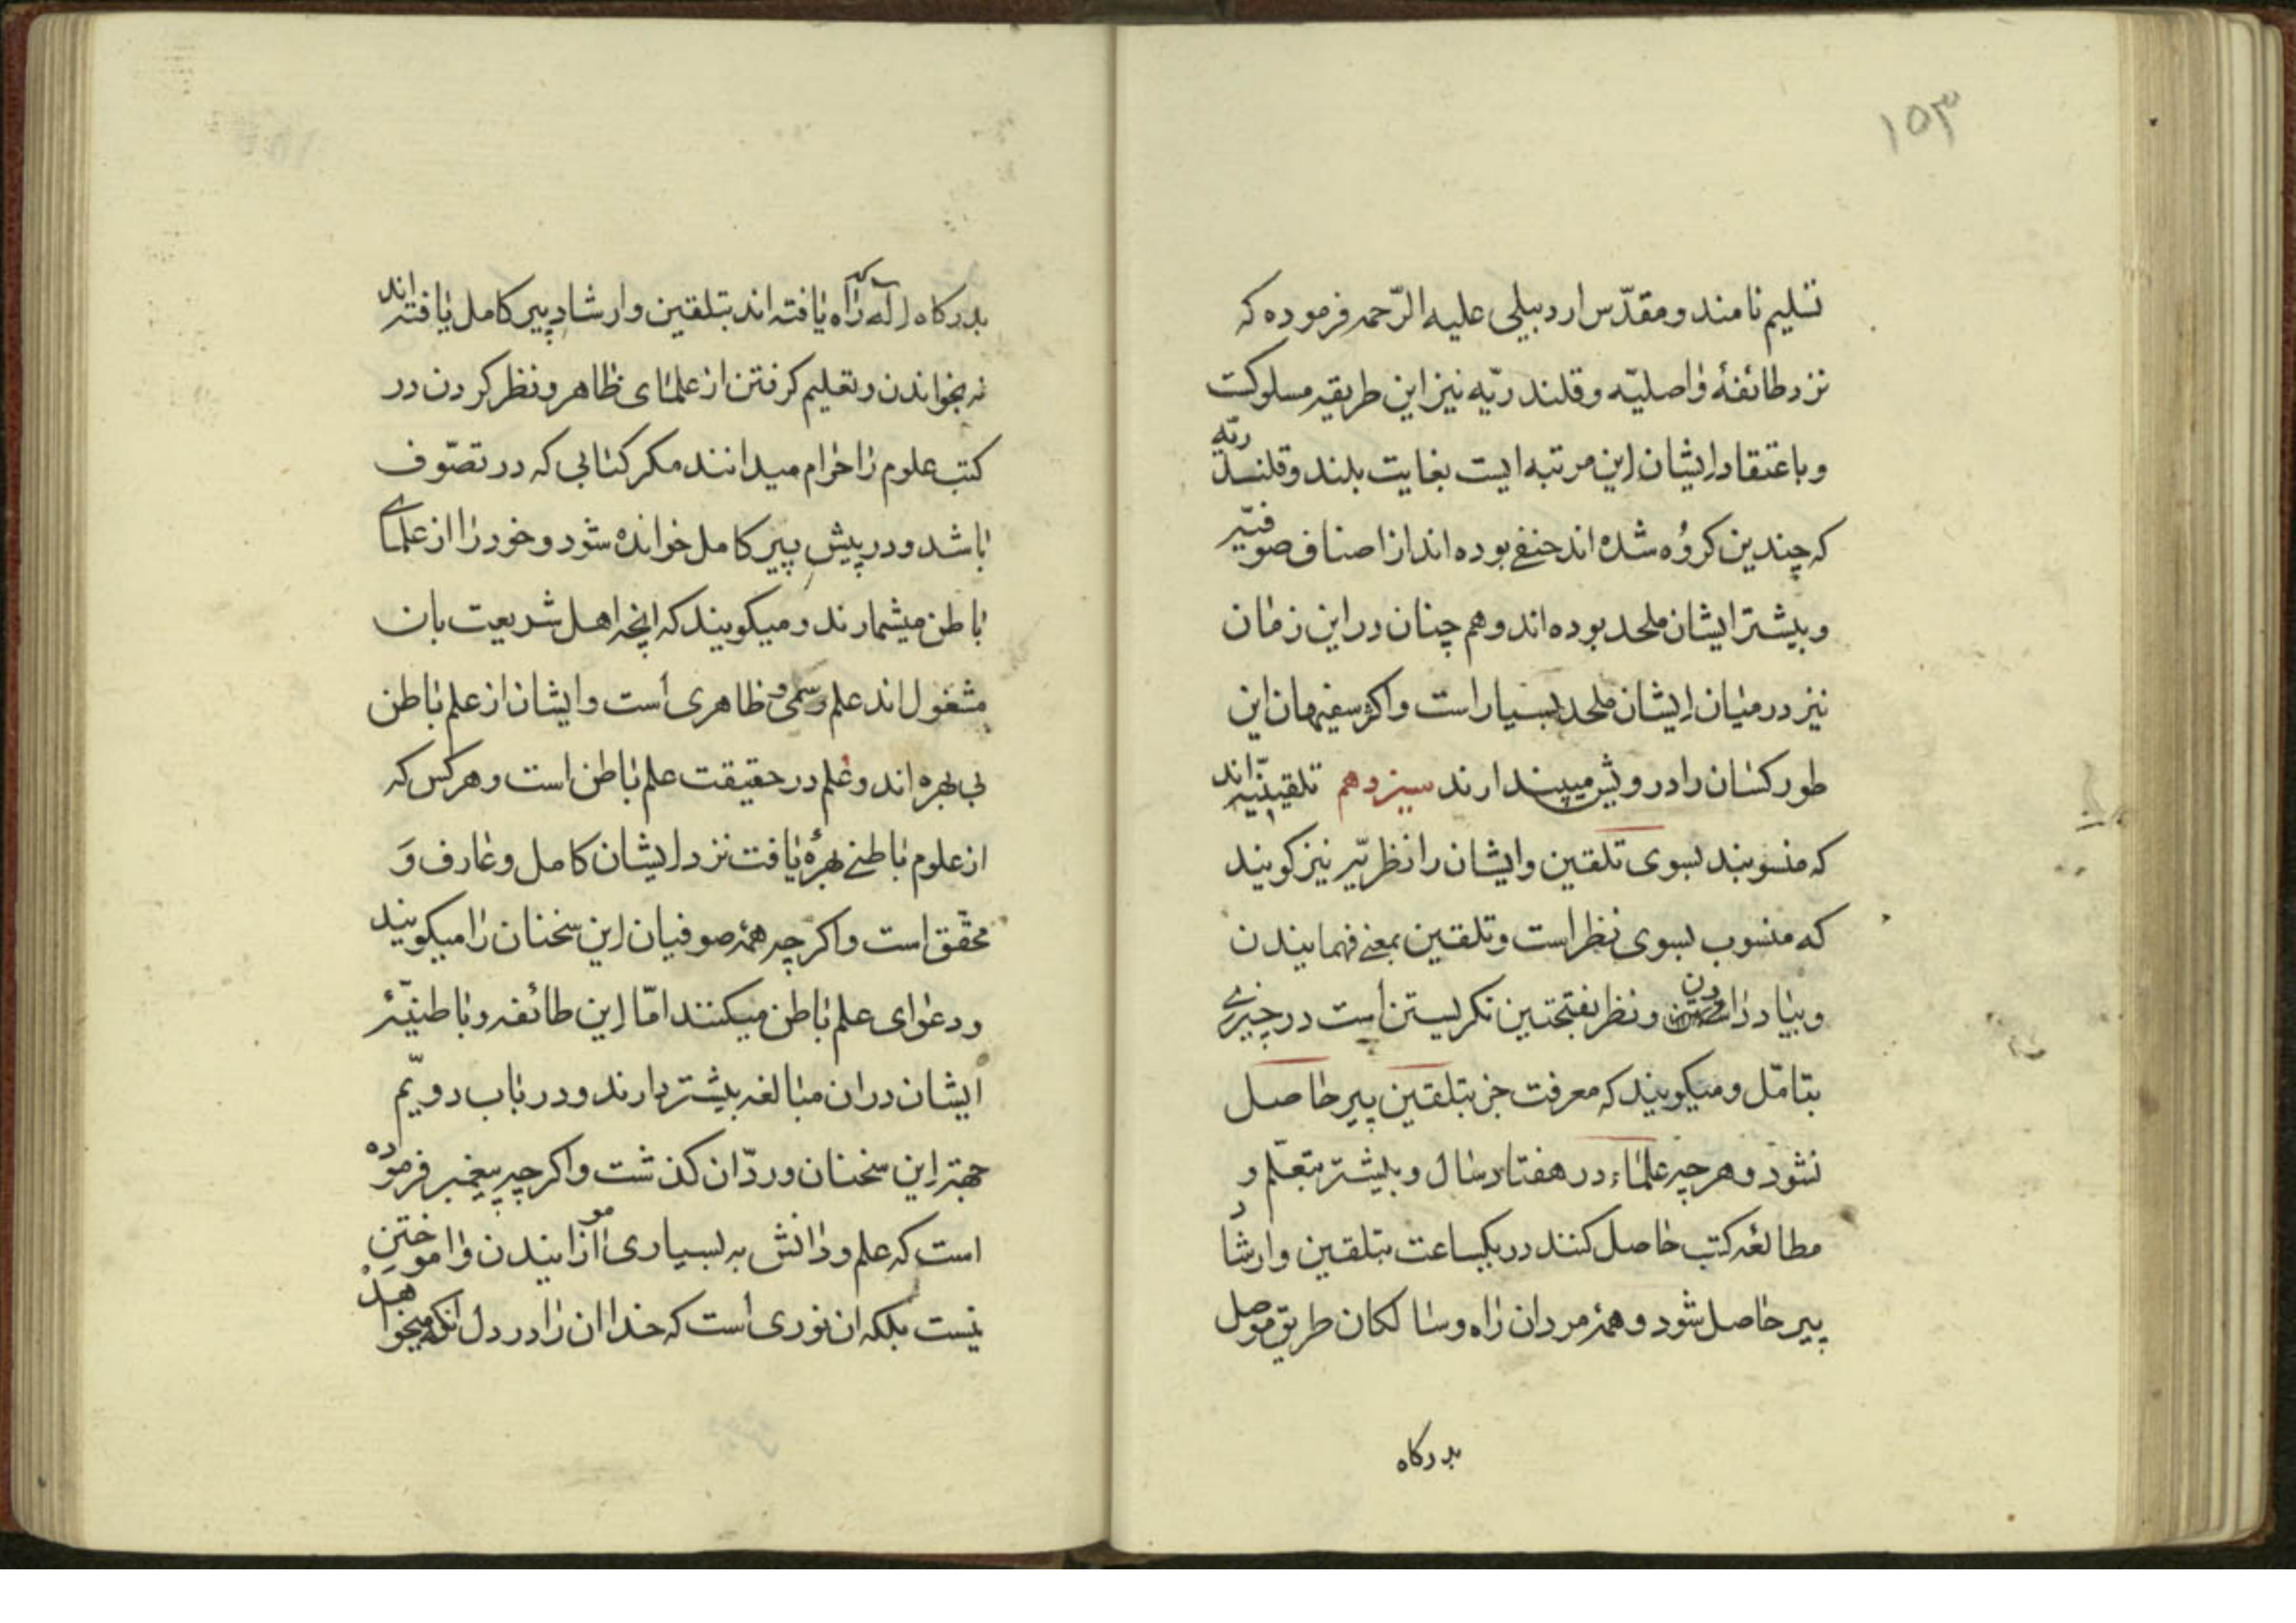 ۱۵۳
تسلیم نامند و مقدّس اردبیلی علیه الرّحمه فرموده که
نزد طائفهٔ واصلیّه و قلندریّه نیز این طریقه مسلوکست
و باعتقاد ایشان این مرتبه ایست بغایت بلند و قلندریّه
که چندین کروه شده اند حنفی بوده اند از اصناف صوفیّه
و بیشتر ایشان ملحد بوده اند و هم چنان در این زمان
نیز در میان ایشان ملحد بسیار است و اکثر سفیهان این
طور کسان را درویش میپندارند سیزدهم تلقینیّه اند
که منسوبند بسوی تلقین و ایشان را نظریّه نیز کویند
که منسوب بسوی نظر است و تلقین بمعنی فهمانیدن
و بیاد دادن و نظر بفتحتین نکریستن است در چیزی
بتامّل و میکویند که معرفت جز بتلقین پیر حاصل
نشود و هر چه علماء در هفتاد سال و بیشتر بتعلّم و
مطالعهٔ کتب حاصل کنند در یکساعت بتلقین و ارشاد
پیر حاصل شود و همهٔ مردان راه و سالکان طریق موصل
بدرکاه
بدرکاه اله که راه یافته اند بتلقین و ارشاد پیر کامل یافته اند
نه بخواندن و تعلیم کرفتن از علمای ظاهر و نظر کردن در
کتب علوم را حرام میدانند مکر کتابی که در تصوّف
باشد و در پیش پیر کامل خوانده شود و خود را از علمای
باطن میشمارند و میکویند که انچه اهل شریعت بان
مشغول اند علم رسمی و ظاهری است و ایشان از علم باطن
بی بهره اند و علم در حقیقت علم باطن است و هر کس که
از علوم باطنی بهرهٔ یافت نزد ایشان کامل و عارف و
محقّق است و اکرچه همهٔ صوفیان این سخنان را میکویند
و دعوای علم باطن میکنند امّا این طائفه و باطنیّهٔ
ایشان در ان مبالغه بیشتر دارند و در باب دویّم
جهة این سخنان و ردّ ان کذشت و اکرچه پیغمبر فرموده
است که علم و دانش به بسیاری اموزانیدن و اموختن
نیست بلکه ان نوری است که خدا ان را در دل انکه میخواهد